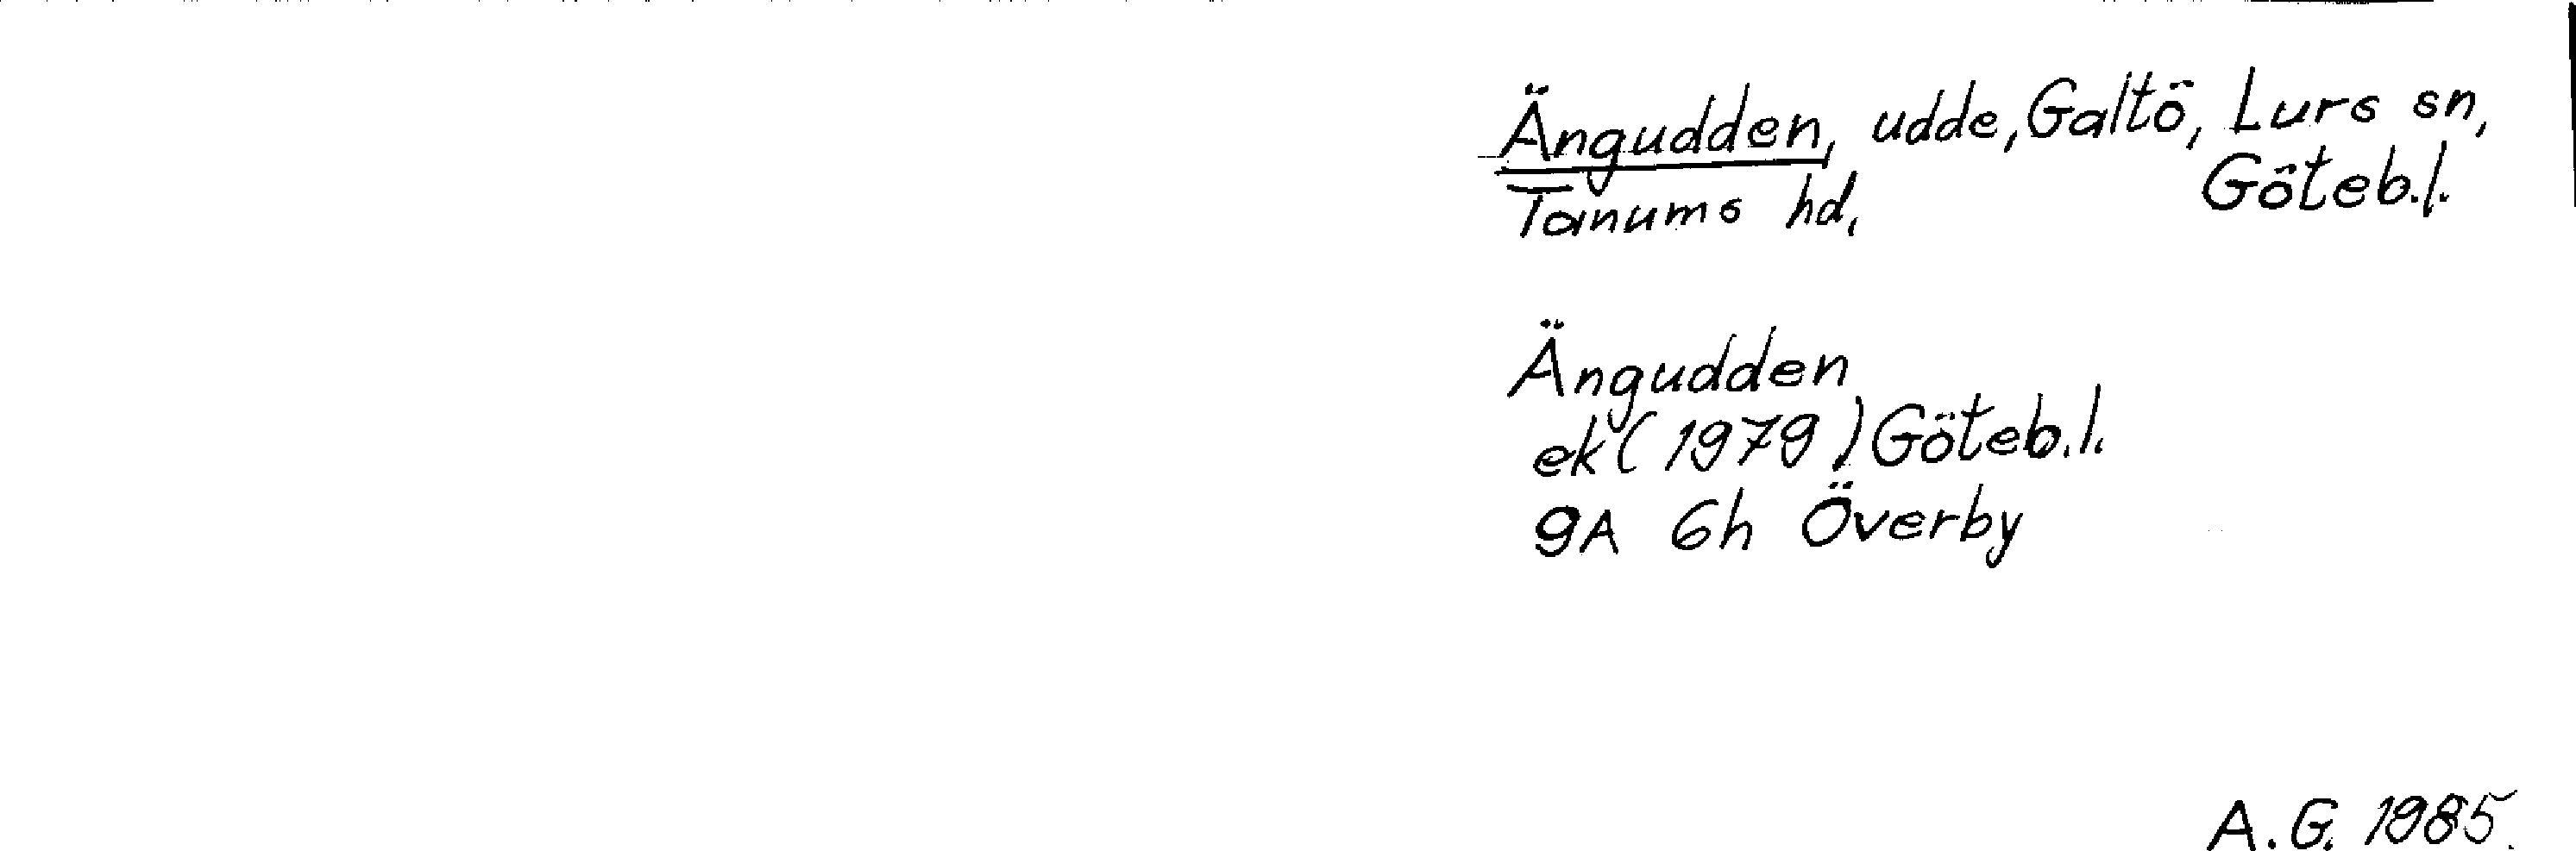 Ängudden, udde, Galtö, Lurs sn,
Tanums hd, Göteb.l.
Ängudden
ek (1979) Göteb.l.
9A 6h Överby
A.G. 1985.